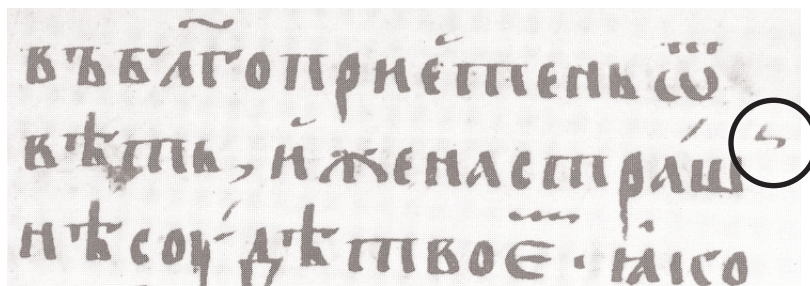 въбл҃гоприе́тень ѿ
вѣть, и҆женастра́шꙿ
нѣсоу́дѣтвоєⷨ · ꙗ҆ко